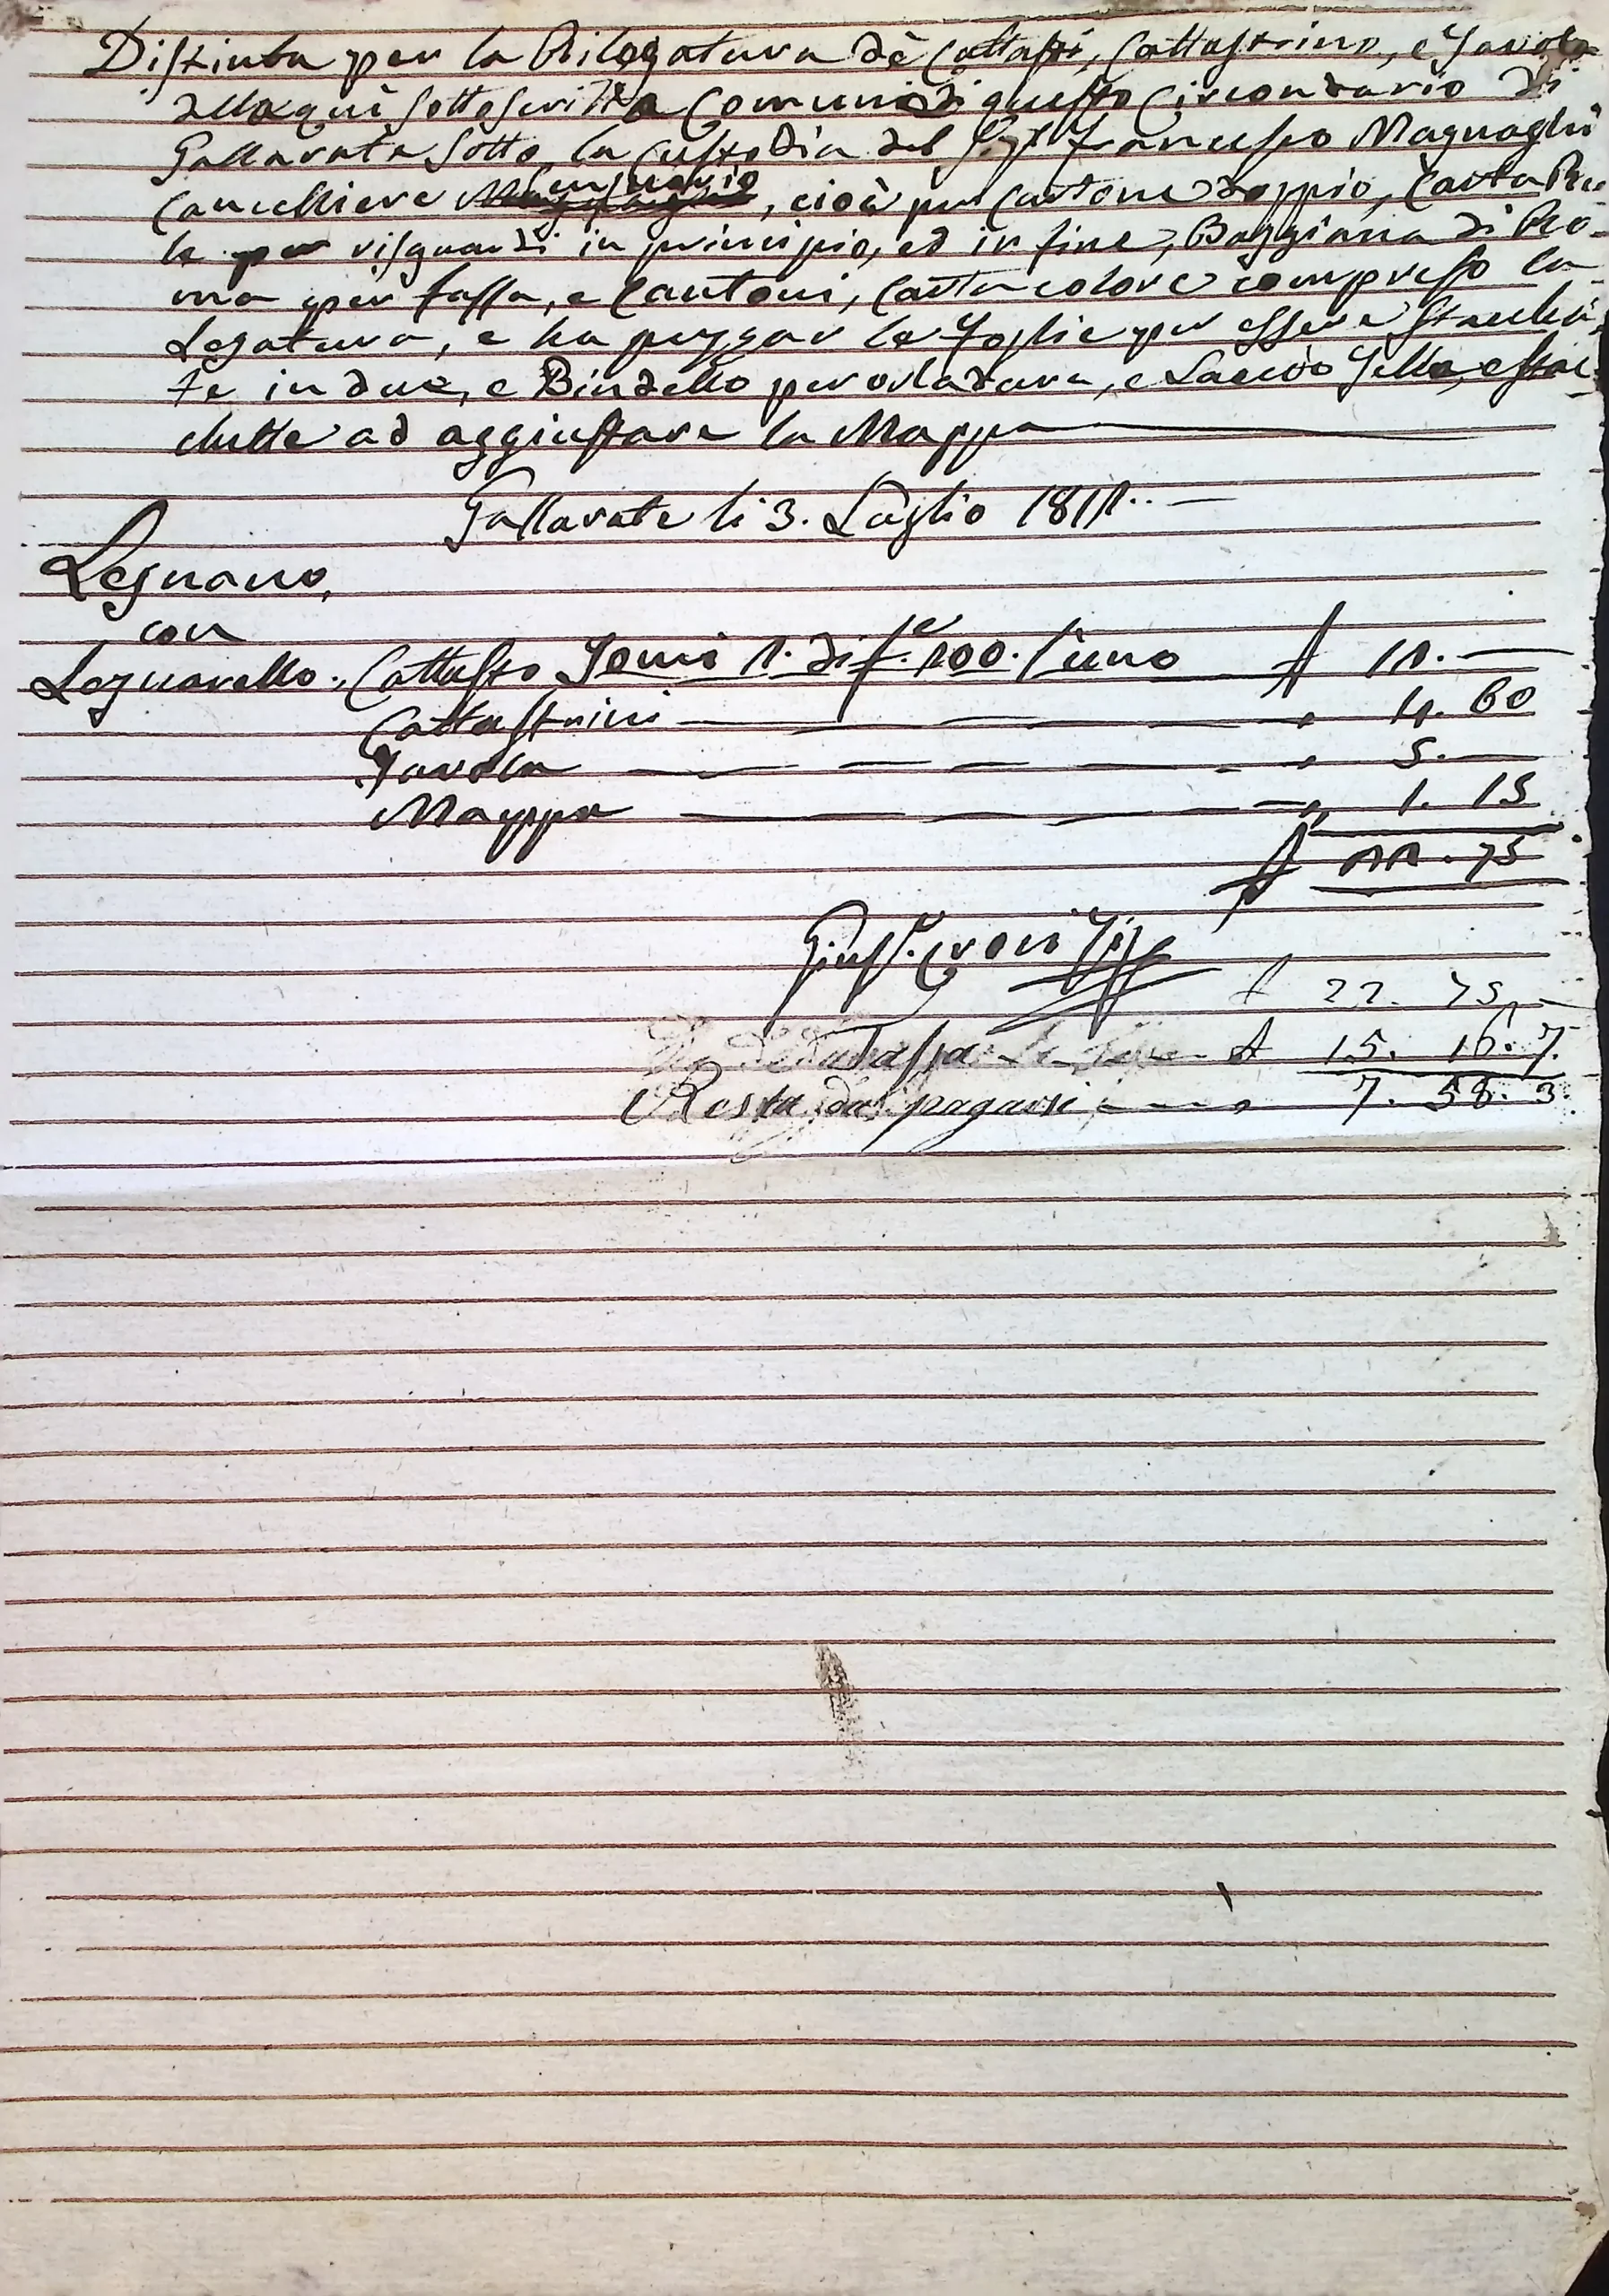 Distinta per la Rilegatura dè Cattasti, Cattastrino, e Tavola
della quì sottoscritta Comuni di questo Circondario di
Gallarate sotto la Custodia del Sigr Francesco Magnaghi
Cancelliere Censuario, cioè per Cartone doppio, Carta Rea-
le per risguardi in principio, ed in fine, Baggiana di Ro-
ma per fassa, e Cantoni, Carta colore compreso la
Legatura, e ha pezzar le foglie per essere stacha-
te in due, e Bindello per orladura, e
ad aggiustare la Mappa
Gallarate li 3. Luglio 1811.
Legnano,
con
Legnarello. Cattasto Tomi 1. di fe. 200. l'uno 11. —
Cattastrini — 4. 60
Tavola — 5. —
Mappa — 1. 15
22. 75
Gius.
22. 75
15. 16. 7.
Resta da pagarsi 7. 58. 3